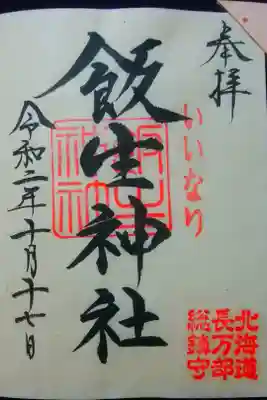 奉拝
いいなり
飯生神社
飯生神社
令和二年十月十七日
北海道
長万部
総鎮守